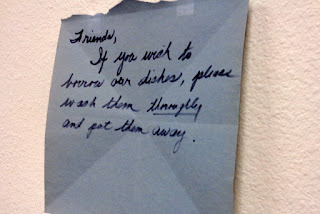 Friends,
If you wish to
borrow our dishes, please
wash them thoroughly
and put them away.